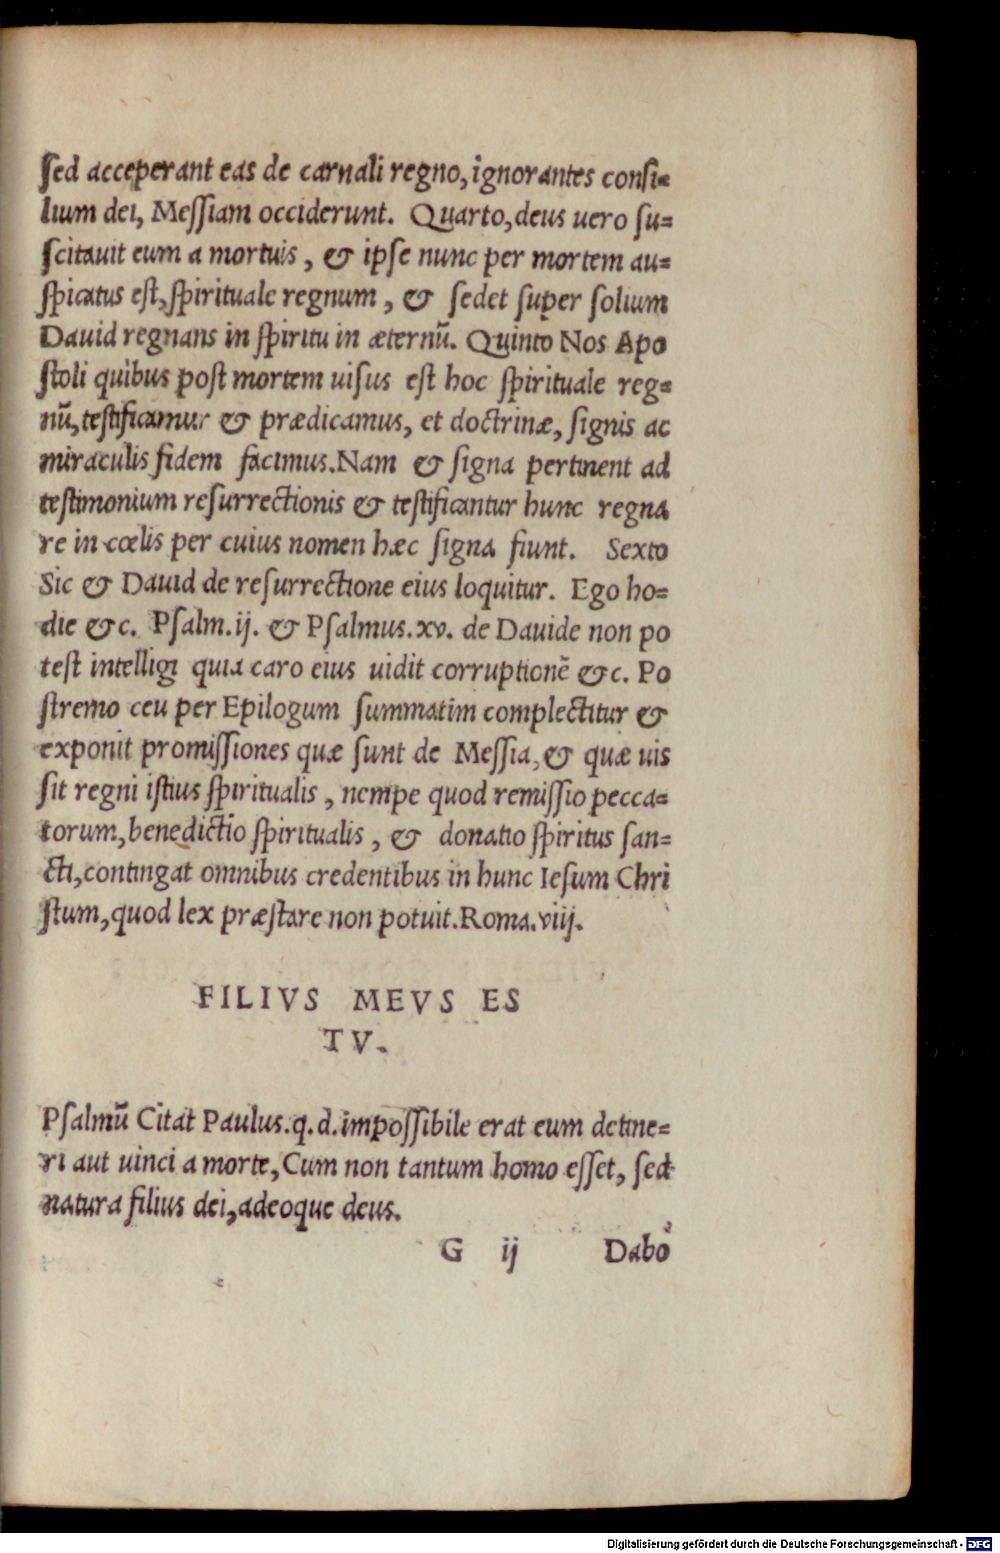 sed acceperant eas de carnali regno, ignorantes consi=
lium dei, Messiam occiderunt. Quarto, deus uero su=
scitauit eum a mortuis, & ipse nunc per mortem au=
spicatus est, spirituale regnum, & sedet super solium
Dauid regnans in spiritu in æternū. Quinto Nos Apo
stoli quibus post mortem uisus est hoc spirituale reg=
nū, testificamur & prædicamus, et doctrinæ, signis ac
miraculis fidem facimus. Nam & signa pertinent ad
testimonium resurrectionis & testificantur hunc regna
re in cœlis per cuius nomen hæc signa fiunt. Sexto
Sic & Dauid de resurrectione eius loquitur. Ego ho=
die &c. Psalm. ij. & Psalmus. xv. de Dauide non po
test intelligi quia caro eius uidit corruptionē &c. Po
stremo ceu per Epilogum summatim complectitur &
exponit promissiones quæ sunt de Messia, & quæ uis
sit regni istius spiritualis, nempe quod remissio pecca=
torum, benedictio spiritualis, & donatio spiritus san=
cti, contingat omnibus credentibus in hunc Iesum Chri
stum, quod lex præstare non potuit. Roma. viij.
FILIVS MEVS ES
TV.
Psalmū Citat Paulus. q. d. impossibile erat eum detine=
ri aut uinci a morte, Cum non tantum homo esset, sed
natura filius dei, adeoque deus.
G ij Dabo
Digitalisierung gefördert durch die Deutsche Forschungsgemeinschaft - DFG